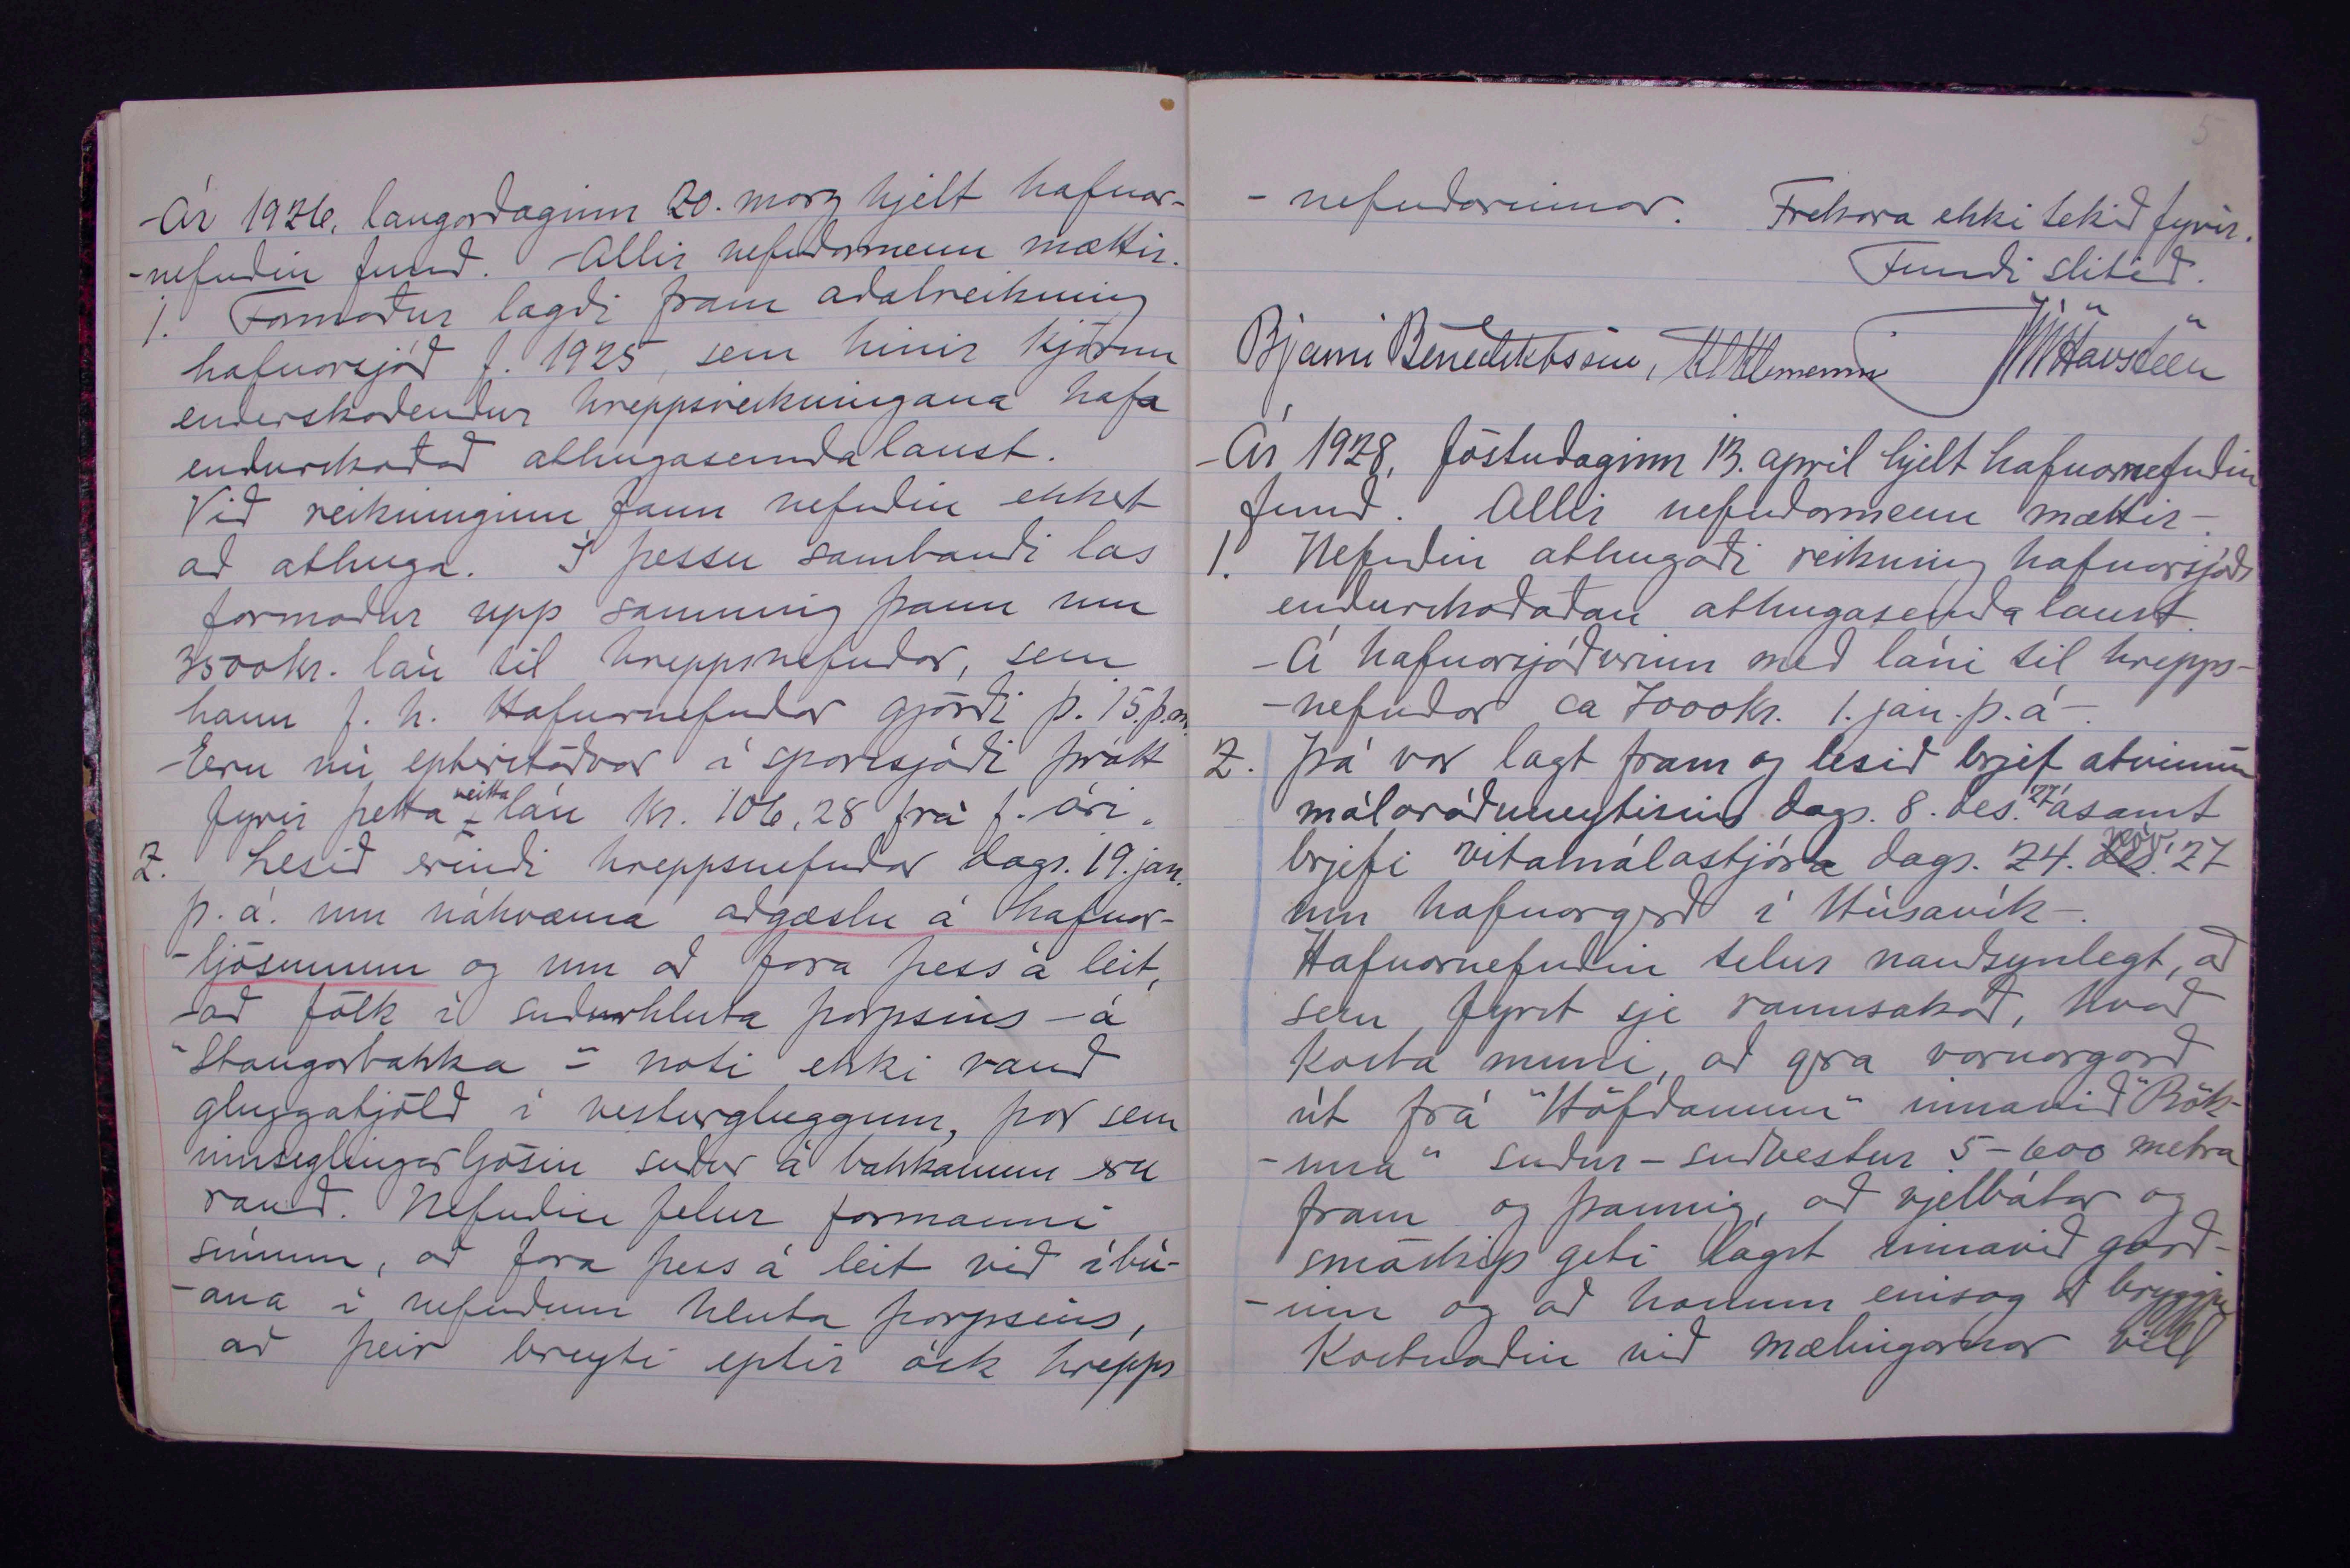 Ár 1926, laugardaginn 20. marz hjelt hafnar-
-nefndin fund. Allir nefndarmenn mættir.
1. Formaður lagði fram aðalreikning
hafnarsjóð f. 1925, sem hinir kjörnu
enderskoðendur hreppsreikningana hafa
endurskoðað athugasemdalaust.
Við reikninginn fann nefndin ekkert
að athuga. Í þessu sambandi las
formaður upp samning þann um
3500kr. lán til hreppsnefndar, sem
hann f. h. Hafnarnefndar gjörði þ. 15. þ.m.
Eru nú eptirstöðvar í sparisjóði þrátt
fyrir þetta veitta lán kr. 106,28 frá f. ári.
2. Lesið erindi hreppsnefndar dags. 19. jan.
þ. á. um nákvæma aðgæslu á hafnar-
-ljósunum og um að fara þess á leit,
að fólk í suðurhluta þorpsins - á
"Stangarbakka" - noti ekki rauð
gluggatjöld í vesturgluggum, þar sem
innsiglingarljósin suður á bakkanum eru
rauð. Nefndin felur formanni
sínum, að fara þess á leit við íbú-
-ana í nefndum hluta þorpsins,
að þeir breyti eptir ósk hrepps
5
-nefndarinnar. Frekara ekki tekið fyrir.
Fundi slitið.
Bjarni Benediktsson, Júl Havsteen
Ár 1928, föstudaginn 13. april hjelt hafnarnefndin
fund. Allir nefndarmenn mættir-
1. Nefndin athugaði reikning hafnarsjóðs
endurskoðaðan athugasemdalaust.
Á hafnarsjóðurinn með láni til hrepps-
-nefndar ca 7000kr. 1. jan. þ. á-.
2. Þá var lagt fram og lesið brjef atvinnu
málaráðuneytisins dags. 8. des. '27 ásamt
brjefi vitamálastjóra dags. 24. nóv. '27
um hafnargerð í Húsavík-.
Hafnarnefndin telur nauðsynlegt, að
sem fyrst sje rannsakað, hvað
kosta muni, að gera varnargarð
út frá "Höfðanum" innanvið "Bök-
-una" suður-suðvestur 5-600 metra
fram og þannig, að vjelbátar og
smáskip geti lagst innavið garð-
-inn og að honum einsog að bryggju
Kostnaðin við mælingarnar vill